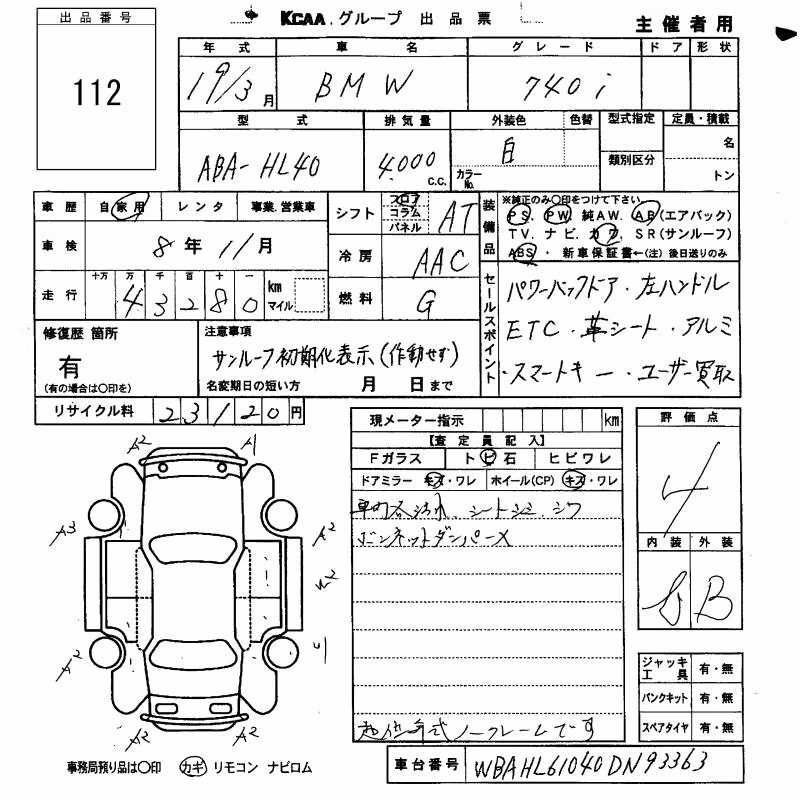 KCAA グループ 出品票
主催者用
出品番号
112
年式 車名 グレード ドア 形状
19/3月 BMW 740i
型式 排気量 外装色 色替 型式指定 定員・積載
ABA-HL40 4.000 C.C. 白 カラーNo. 類別区分 名 トン
車歴 自家用 レンタ 事業.営業車
車検 8年11月
走行 十万 万 千 百 十 一 km マイル
43280
シフト フロア コラム パネル AT
冷房 AAC
燃料 G
装備品 ※純正のみ〇印をつけて下さい
PS. PW. 純AW. AB(エアバック)
TV. ナビ. カワ. SR(サンルーフ)
ABS ・ 新車保証書←(注) 後日送りのみ
セールスポイント
パワーバックドア・左ハンドル
ETC・革シート・アルミ
・スマートキー・ユーザー買取
修復歴 箇所
有
(有の場合は〇印を)
注意事項
サンルーフ初期化表示(作動せず)
名変期日の短い方 月 日まで
リサイクル料 23120円
現メーター指示 km
【査定員記入】
Fガラス トビ石 ヒビワレ
ドアミラー キズ・ワレ ホイール(CP) キズ・ワレ
シートシミ、シワ
ボンネットダンパー×
年式 ノークレームです
評価点
4
内装 外装
B
ジャッキ工具 有・無
パンクキット 有・無
スペアタイヤ 有・無
A2 A1
A3 A2
A2
A2
A2 A2
事務局預り品は〇印 カギ リモコン ナビロム
車台番号 WBAHL61040DN93363